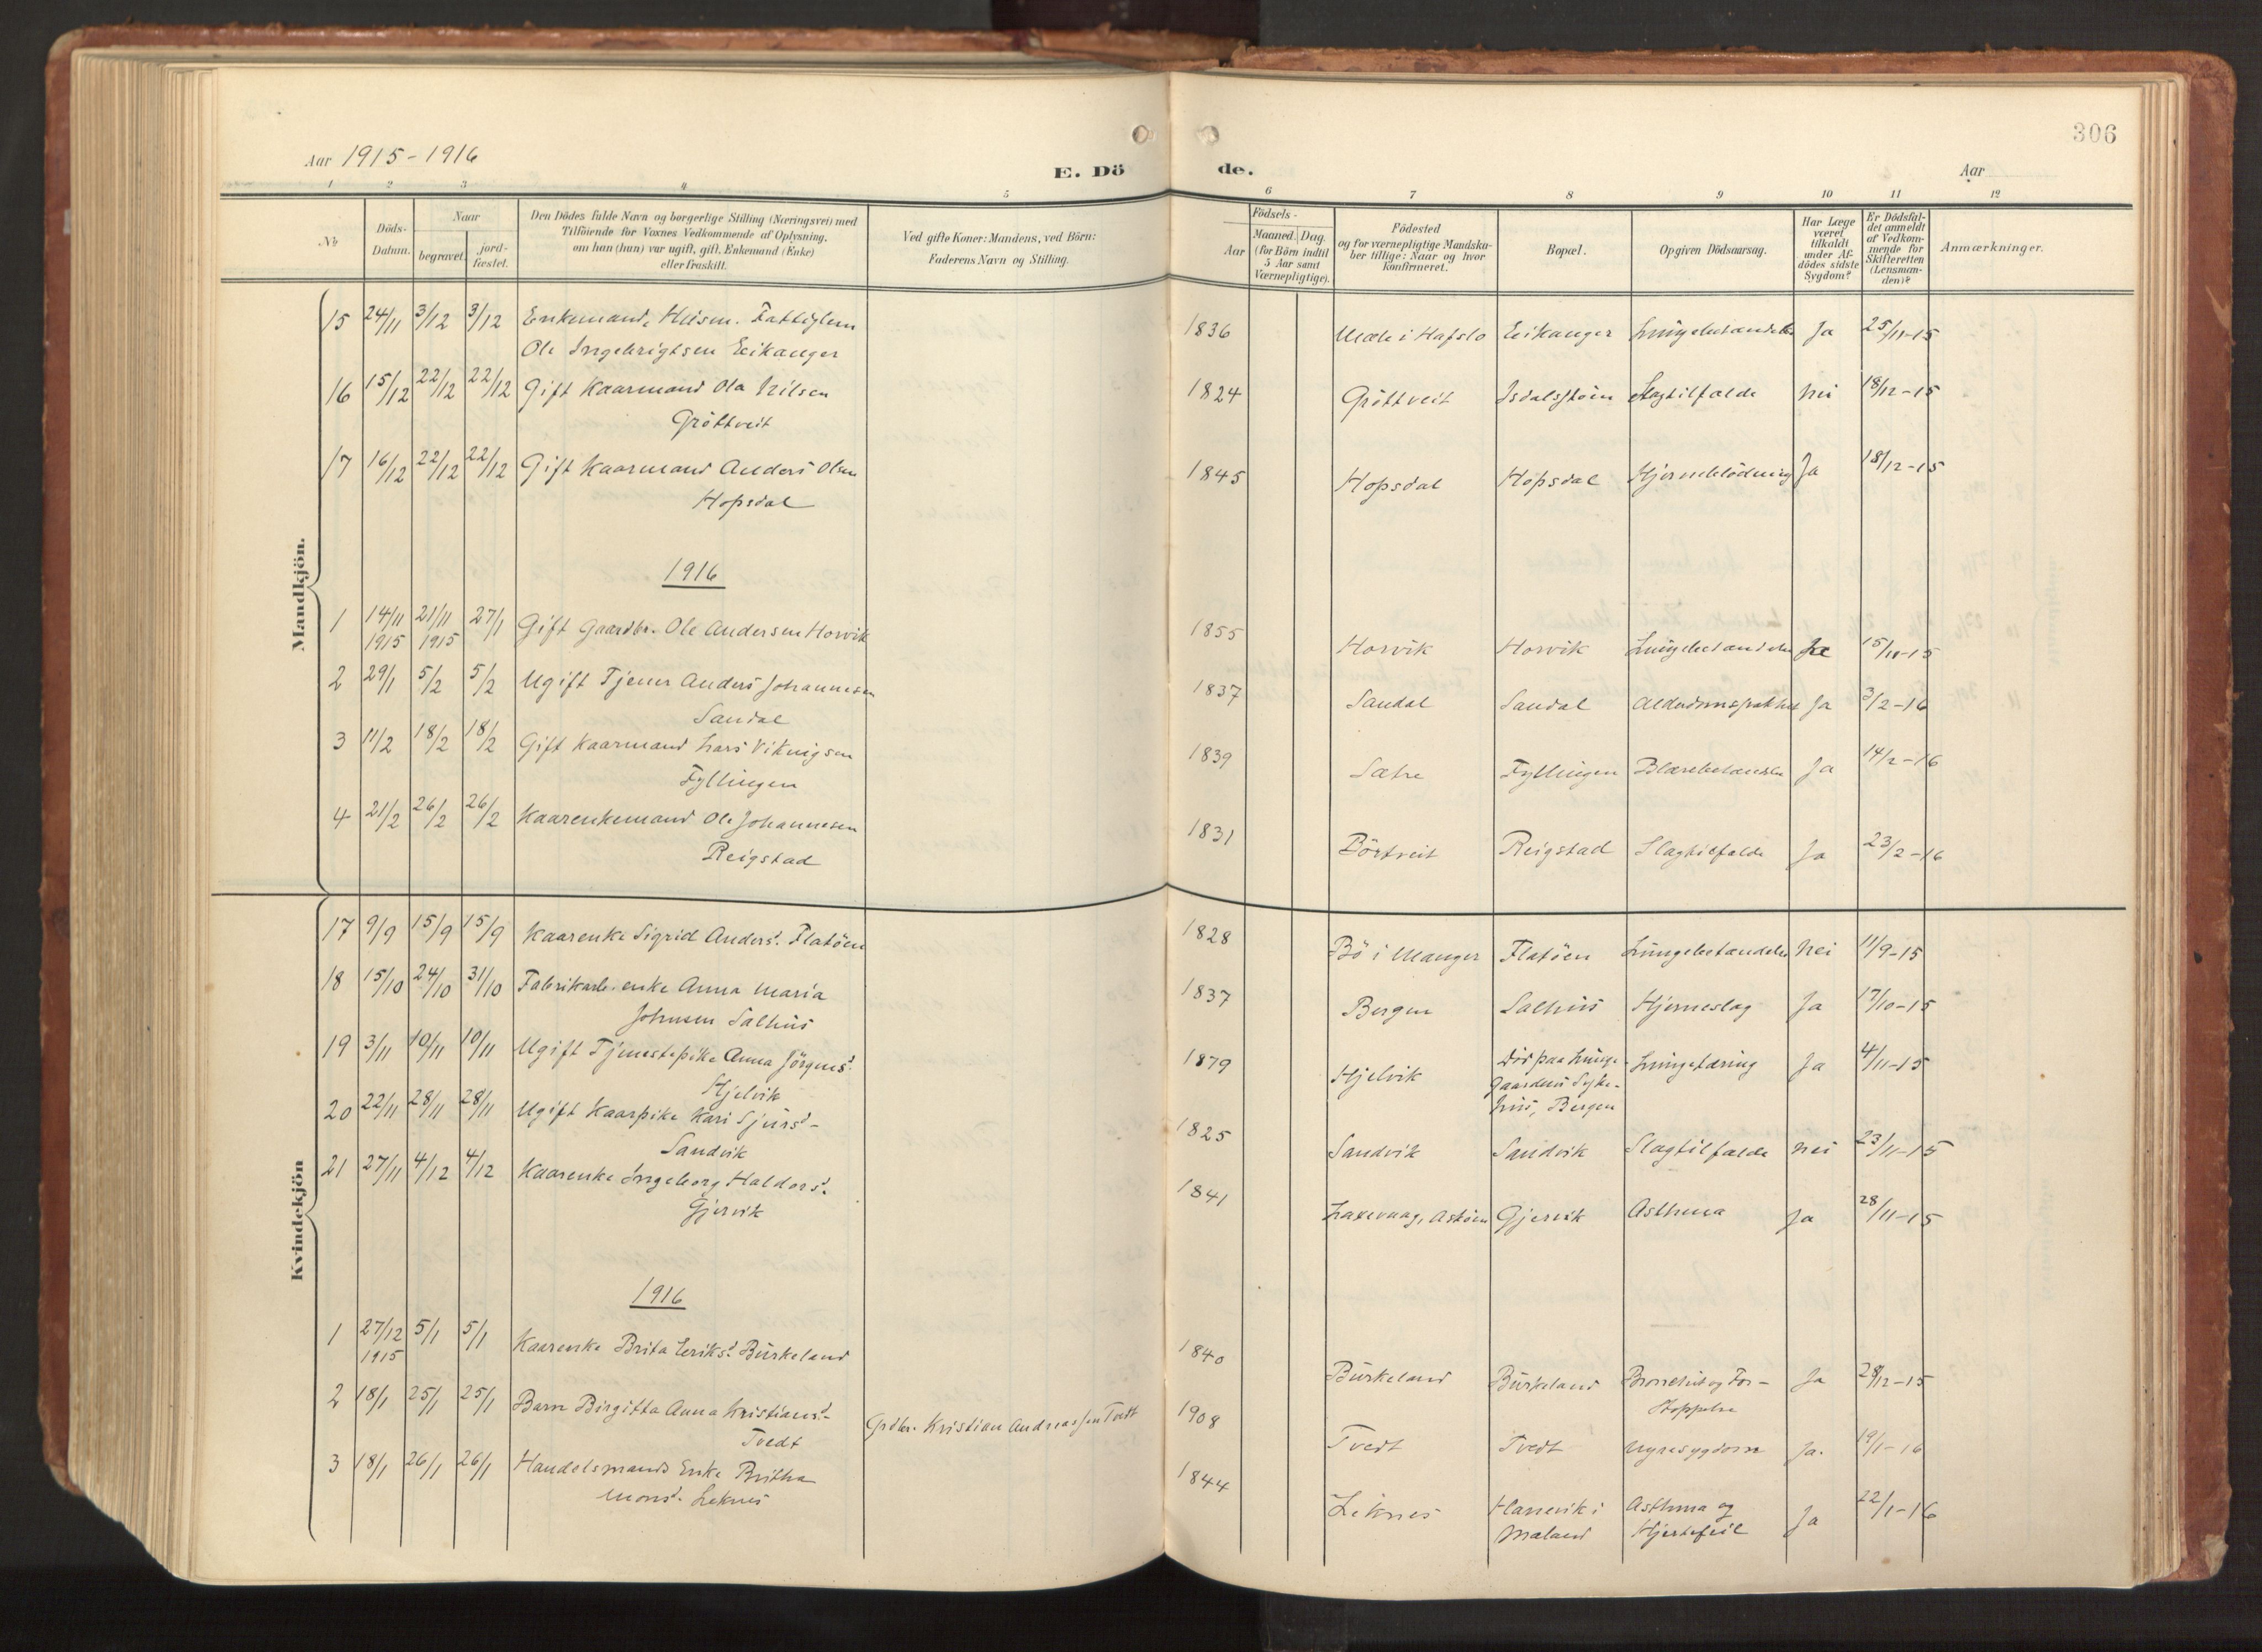 306
Aar 1915-1916
E. Dö
de.
Aar
1 2 3 4 5 6 7 8 9 10 11 12
No
Döds-Datum.
Naar
begravet.
jord-fæstet.
Den Dödes fulde Navn og borgerlige Stilling (Næringsvei) med
Tilföiende for Voxnes Vedkommende af Oplysning,
om han (hun) var ugift, gift, Enkemand (Enke)
eller fraskilt.
Ved gifte Koner: Mandens, ved Börn:
Faderens Navn og Stilling.
Födsels-
Aar
Maaned. Dag.
(for Börn indtil
5 Aar samt
Værnepligtige).
Födested
og for værnepligtige Mandska-
ber tillige: Naar og hvor
konfirmeret.
Bopæl.
Opgiven Dödsaarsag.
Har Læge
været
tilkaldt
under Af-
dödes sidste
Sygdom?
Er Dödsfal-
det anmeldt
af Vedkom-
mende for
Skifteretten
(Lensman-
den)?
Anmærkninger.
Mandkjön.
15 24/11 3/12 3/12 Enkemand, Husm. Fattiglem 1836 i Hafslo Eikanger Lungebetændelse Ja 25/11-15
Ole Ingebrigtsen Eikanger
16 15/12 22/12 22/12 Gift Kaarmand Ola Nilsen 1824 Gröttveit Isdalstöen Slagtilfælde Nei 18/12-15
Gröttveit
17 16/12 22/12 22/12 Gift Kaarmand Anders Olsen 1845 Hopsdal Hopsdal Hjerneblödning Ja 18/12-15
Hopsdal
1916
1 14/11 21/11 27/1 Gift Gaardbr. Ole Andersen Horvik 1855 Horvik Horvik Lungebetændelse Ja 15/11-15
1915 1915
2 29/1 5/2 5/2 Ugift Tjener Anders Johannesen 1837 Sandal Sandal Alderdomssvakhet Ja 3/2-16
Sandal
3 11/2 18/2 18/2 Gift Kaarmand Lars Vikingsen 1839 Sætre Fyllingen Blærebetændelse Ja 14/2-16
Fyllingen
4 21/2 26/2 26/2 Kaarenkemand Ole Johannesen 1831 Börtveit Reigstad Slagtilfælde Ja 23/2-16
Reigstad
Kvindekjön
17 9/9 15/9 15/9 Kaarenke Sigrid Andersd. Flatöen 1828 Bö i Manger Flatöen Lungebetændelse Nei 11/9-15
18 15/10 24/10 31/10 Fabrikarb. enke Anna Maria 1837 Bergen Salhus Hjerneslag Ja 17/10-15
Johnsen Salhus
19 3/11 10/11 10/11 Ugift Tjenestepike Anna Jörgensd. 1879 Hjelvik Död paa Lunge- Lungetæring Ja 4/11-15
Hjelvik gaardens Syke-
hus, Bergen
20 22/11 28/11 28/11 Ugift Kaarpike Kari Sjursd- 1825 Sandvik Sandvik Slagtilfælde Nei 23/11-15
Sandvik
21 27/11 4/12 4/12 Kaarenke Ingeborg Haldorsd. 1841 Laxevaag, Asköen Gjervik Asthma Ja 28/11-15
Gjervik
1916
1 27/12 5/1 5/1 Kaarenke Brita Eriksd. Burkeland 1840 Burkeland Burkeland og For- Ja 28/12-15
1915
2 18/1 25/1 25/1 Barn Birgitta Anna Kristiansd- Grdbr. Kristian Andreassen Tvedt 1908 Tvedt Tvedt Nyresygdom Ja. 19/1-16
Tvedt
3 18/1 26/1 26/1 Handelsmands Enke Britha 1844 Leknes Hannevik i Asthma og Ja 22/1-16
Monsd. Leknes Mæland Hjertefeil